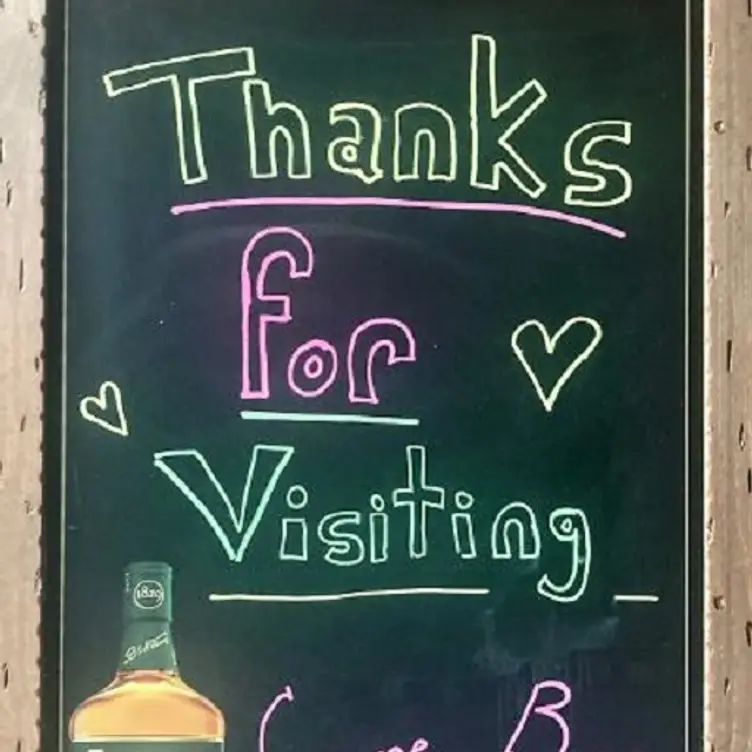 Thanks
for
Visiting
1820